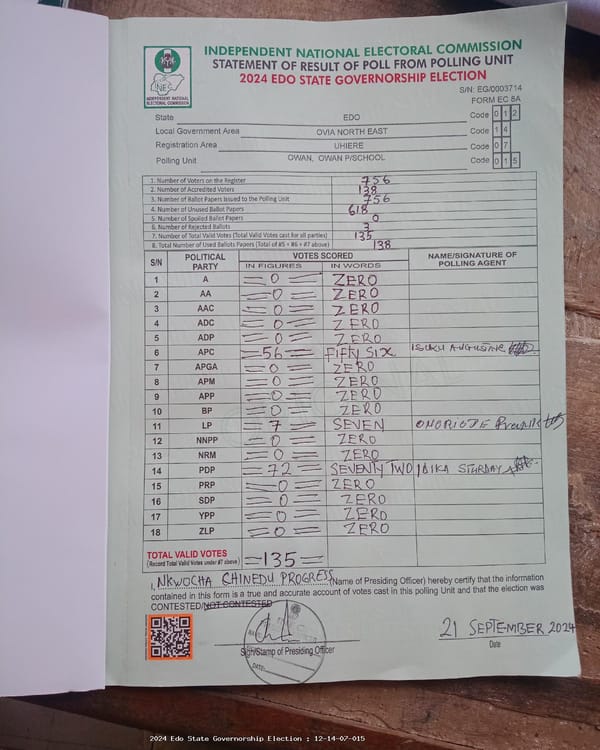 INDEPENDENT NATIONAL ELECTORAL COMMISSION
STATEMENT OF RESULT OF POLL FROM POLLING UNIT
2024 EDO STATE GOVERNORSHIP ELECTION
INEC
INDEPENDENT NATIONAL ELECTORAL COMMISSION
S/N: EG/0003714
FORM EC 8A
State EDO Code 0 1 2
Local Government Area OVIA NORTH EAST Code 1 4
Registration Area UHIERE Code 0 7
Polling Unit OWAN, OWAN P/SCHOOL Code 0 1 5
1. Number of Voters on the Register 756
2. Number of Accredited Voters 138
3. Number of Ballot Papers Issued to the Polling Unit 756
4. Number of Unused Ballot Papers 618
5. Number of Spoiled Ballot Papers 0
6. Number of Rejected Ballots 3
7. Number of Total Valid Votes (Total Valid Votes cast for all parties) 135
8. Total Number of Used Ballots Papers (Total of #5 + #6 + #7 above) 138
S/N POLITICAL PARTY VOTES SCORED IN FIGURES IN WORDS NAME/SIGNATURE OF POLLING AGENT
1 A 0 ZERO
2 AA 0 ZERO
3 AAC 0 ZERO
4 ADC 0 ZERO
5 ADP 0 ZERO
6 APC 56 FIFTY SIX ISUKU AUGUSTINE
7 APGA 0 ZERO
8 APM 0 ZERO
9 APP 0 ZERO
10 BP 0 ZERO
11 LP 7 SEVEN
12 NNPP 0 ZERO
13 NRM 0 ZERO
14 PDP 72 SEVENTY TWO
15 PRP 0 ZERO
16 SDP 0 ZERO
17 YPP 0 ZERO
18 ZLP 0 ZERO
TOTAL VALID VOTES
(Record Total Valid Votes under #7 above) 135
I, NKWOCHA CHINEDU PROGRESS (Name of Presiding Officer) hereby certify that the information
contained in this form is a true and accurate account of votes cast in this polling Unit and that the election was
CONTESTED/NOT CONTESTED
21 SEPTEMBER 2024
Sign/Stamp of Presiding Officer Date
DATE:
2024 Edo State Governorship Election : 12-14-07-015